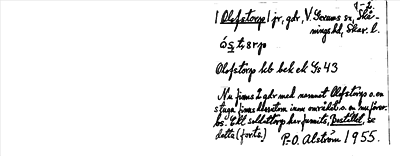 1 Olofstorp 1 jr, gdr, V. Gerums sn, Skä-
nings hd, Skar. l.
Olofstorp kb bek ek Ys 43
Nu finns 2 gdr med namnet Olofstorp o. en
stuga finns dessutom inom området. o. en
bs. Ett soldattorp har funnits, Boställd, se
detta (forts.)
P.-O. Alström 1955.